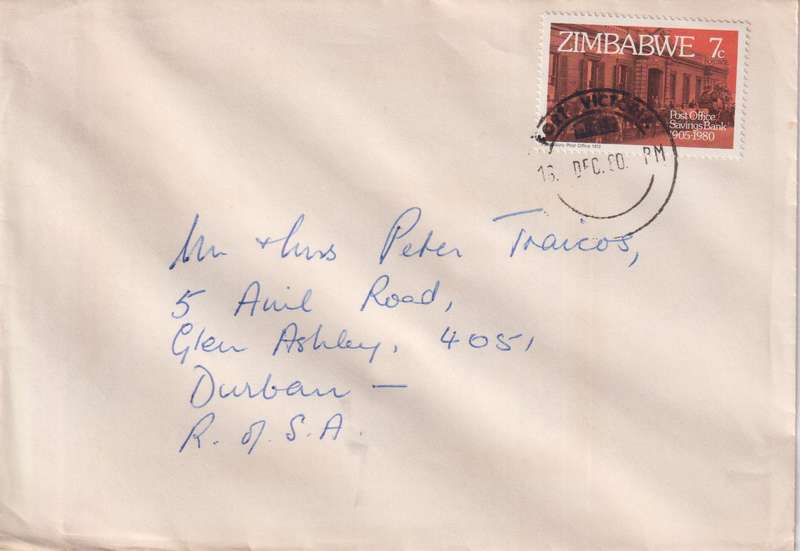 ZIMBABWE 7c
Post Office
Savings Bank
1905-1980
FORT VICTORIA
16. DEC. 80. PM
Mr & Mrs Peter Traicos,
5 Anil Road,
Glen Ashley, 4051,
Durban —
R. of S. A.